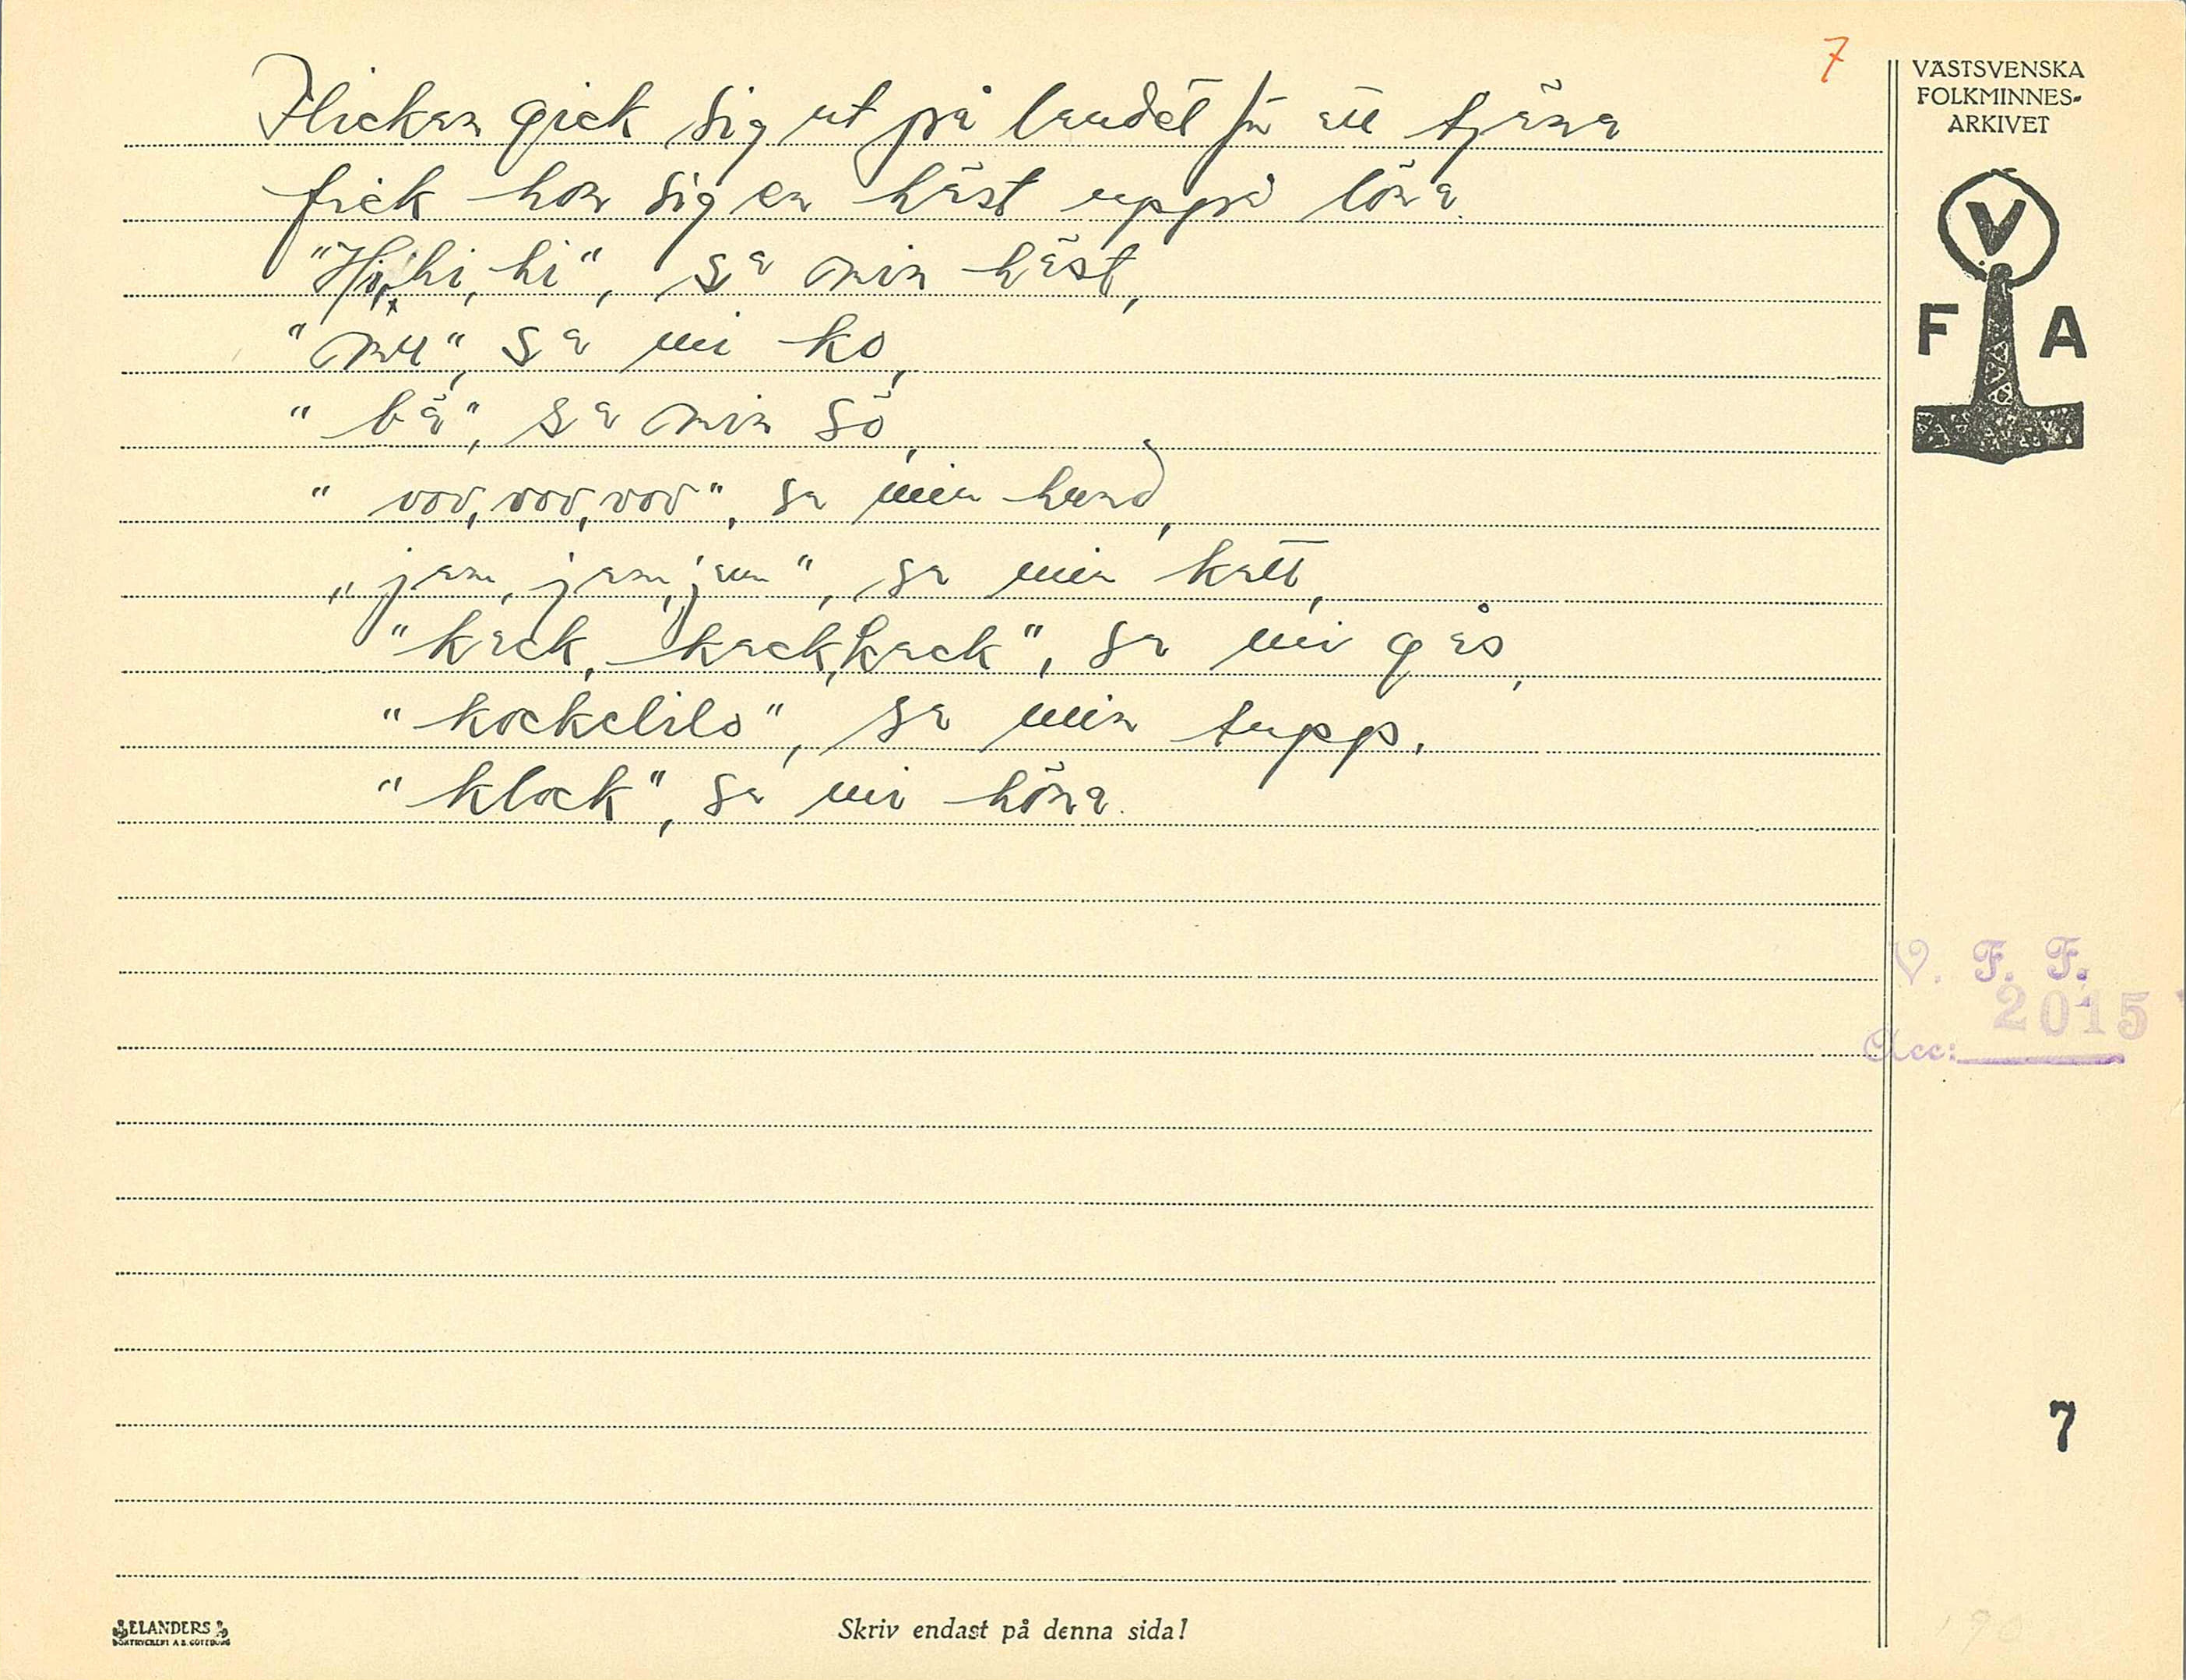 7
VÄSTSVENSKA
FOLKMINNES-
ARKIVET
V
F A
Flickan gick sig ut på landet för att tjäna
fick hon sig en häst uppå löna.
"Hi, hi, hi", sa min häst,
"mu", sa mi ko,
"bä", sa min sö,
"vov, vov, vov", sa min hund,
"jam, jam, jam", sa min katt,
"kack, kack, kack", sa mi gås,
"kockelilo", sa min tupp.
"klock", sa mi höna.
V. F. F.
2015
Acc:
7
ELANDERS
BOKTRYCKERI A.B. GÖTEBORG
Skriv endast på denna sida!
190